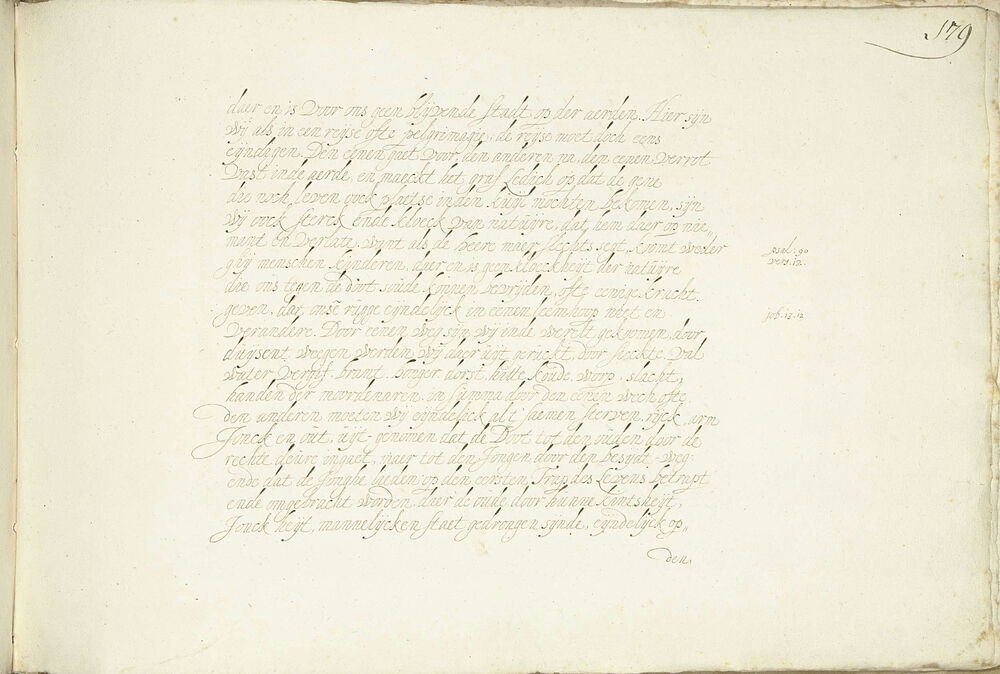 179
daer en is voor ons geen blijvende stadt, op der aerden. Hier sijn
wij als in een reijse ofte pelgrimagie, de reijse moet doch eens
eijndigen. Den eenen gaet voor, den anderen na, den eenen verrot
vast inde aerde, en maeckt het graf ledich op dat de gene
die noch leven oock plaetse inden kuijl mochten bekomen, sijn
wij oock sterck ende kloeck van natuijre, dat hem daer op nie„
mant en verlate, want als de heere maer slechts segt, komt weder
ghij menschen kijnderen, daer en is geen kloeckheijt der natuijre
psal: 90
vers. 12.
die ons tegen de doot soude konnen bevrijden, ofte eenige kracht
geven, dat onse rugge eijndelijck in eenen leemhoop niet en
job. 13. 12
verandere. Door eenen weg sijn wij inde werelt gekoomen, door
duijsent weegen werden wij daer uijt geruckt, door sieckte, val
water, vergif, brant, honger dorst, hitte koude, worp, slacht,
handen der moordenaren, in summa door den eenen wech ofte
den anderen moeten wij eijndelijck al t'saemen sterven, rijck, arm
Jonck en out, uijt-genomen dat de Doot tot den ouden door de
rechte deure ingaet, maer tot den Jongen door den besijdt-weg:
ende dat de Jonghe lieden op den eersten Trap des Levens betrapt
ende omgebracht worden, daer de oude door hunne kintsheijt,
Jonckheijt, mannelijcken staet gedrongen sijnde, eijndelijck op„
den